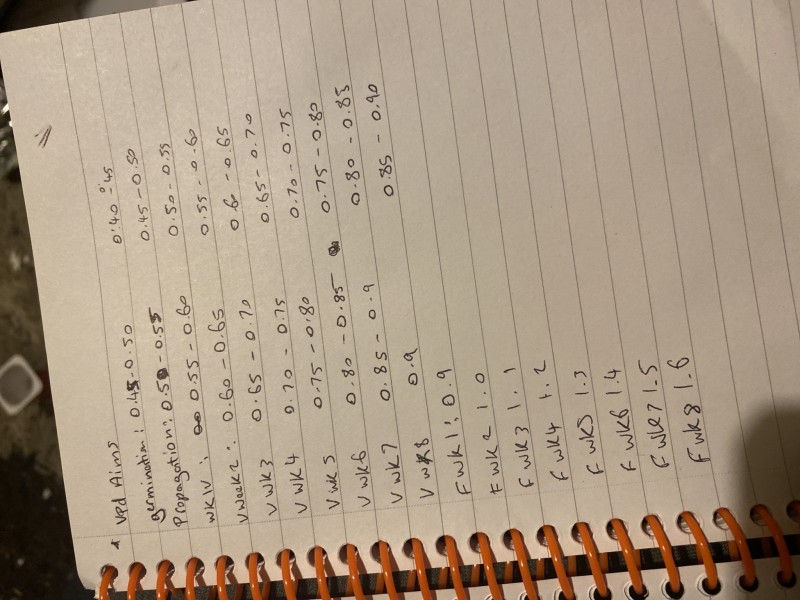 * Vpd Aims
germination: 0.45-0.50 0.40-0.45
Propagation: 0.50-0.55 0.45-0.50
wk1V: 0.55-0.60 0.50-0.55
Vweek2: 0.60-0.65 0.55-0.60
V wk3 0.65-0.70 0.60-0.65
V wk4 0.70-0.75 0.65-0.70
V wk5 0.75-0.80 0.70-0.75
V wk6 0.80-0.85 0.75-0.80
V wk7 0.85-0.9 0.80-0.85
V wk8 0.9 0.85-0.90
F wk1: 0.9
F wk2 1.0
F wk3 1.1
F wk4 1.2
F wk5 1.3
F wk6 1.4
F wk7 1.5
F wk8 1.6